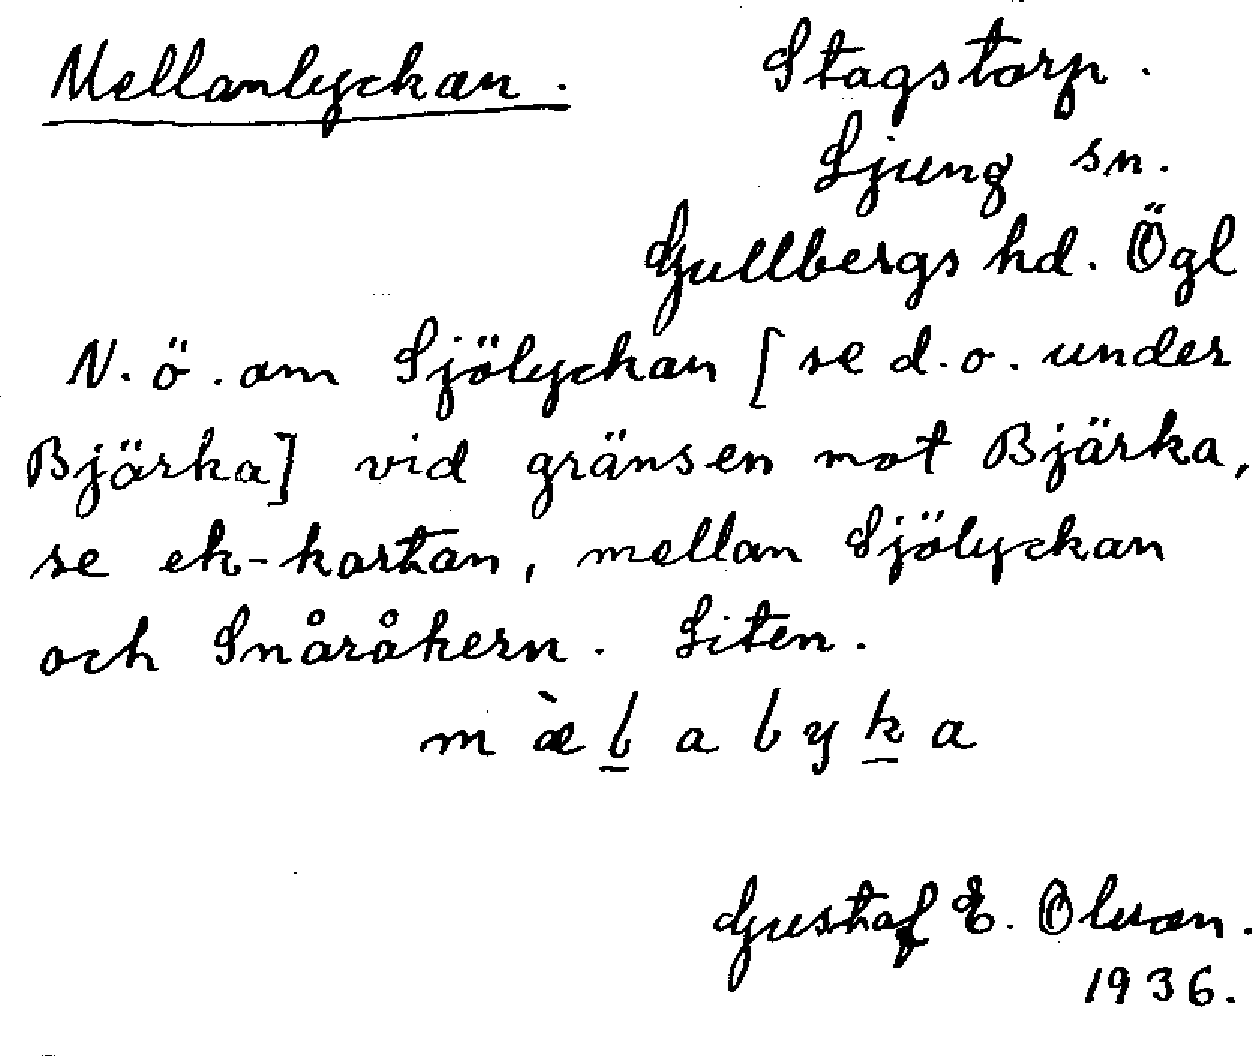 Mellanlyckan. Stagstorp.
Ljung sn.
Gullbergs hd. Ögl
N.ö. om Sjölyckan [se d.o. under
Bjärka] vid gränsen mot Bjärka,
se ek-kartan, mellan Sjölyckan
och Snåråkern. Liten.
m æ̀ l̲ a l y k̲ a
Gustaf E. Olson.
1936.